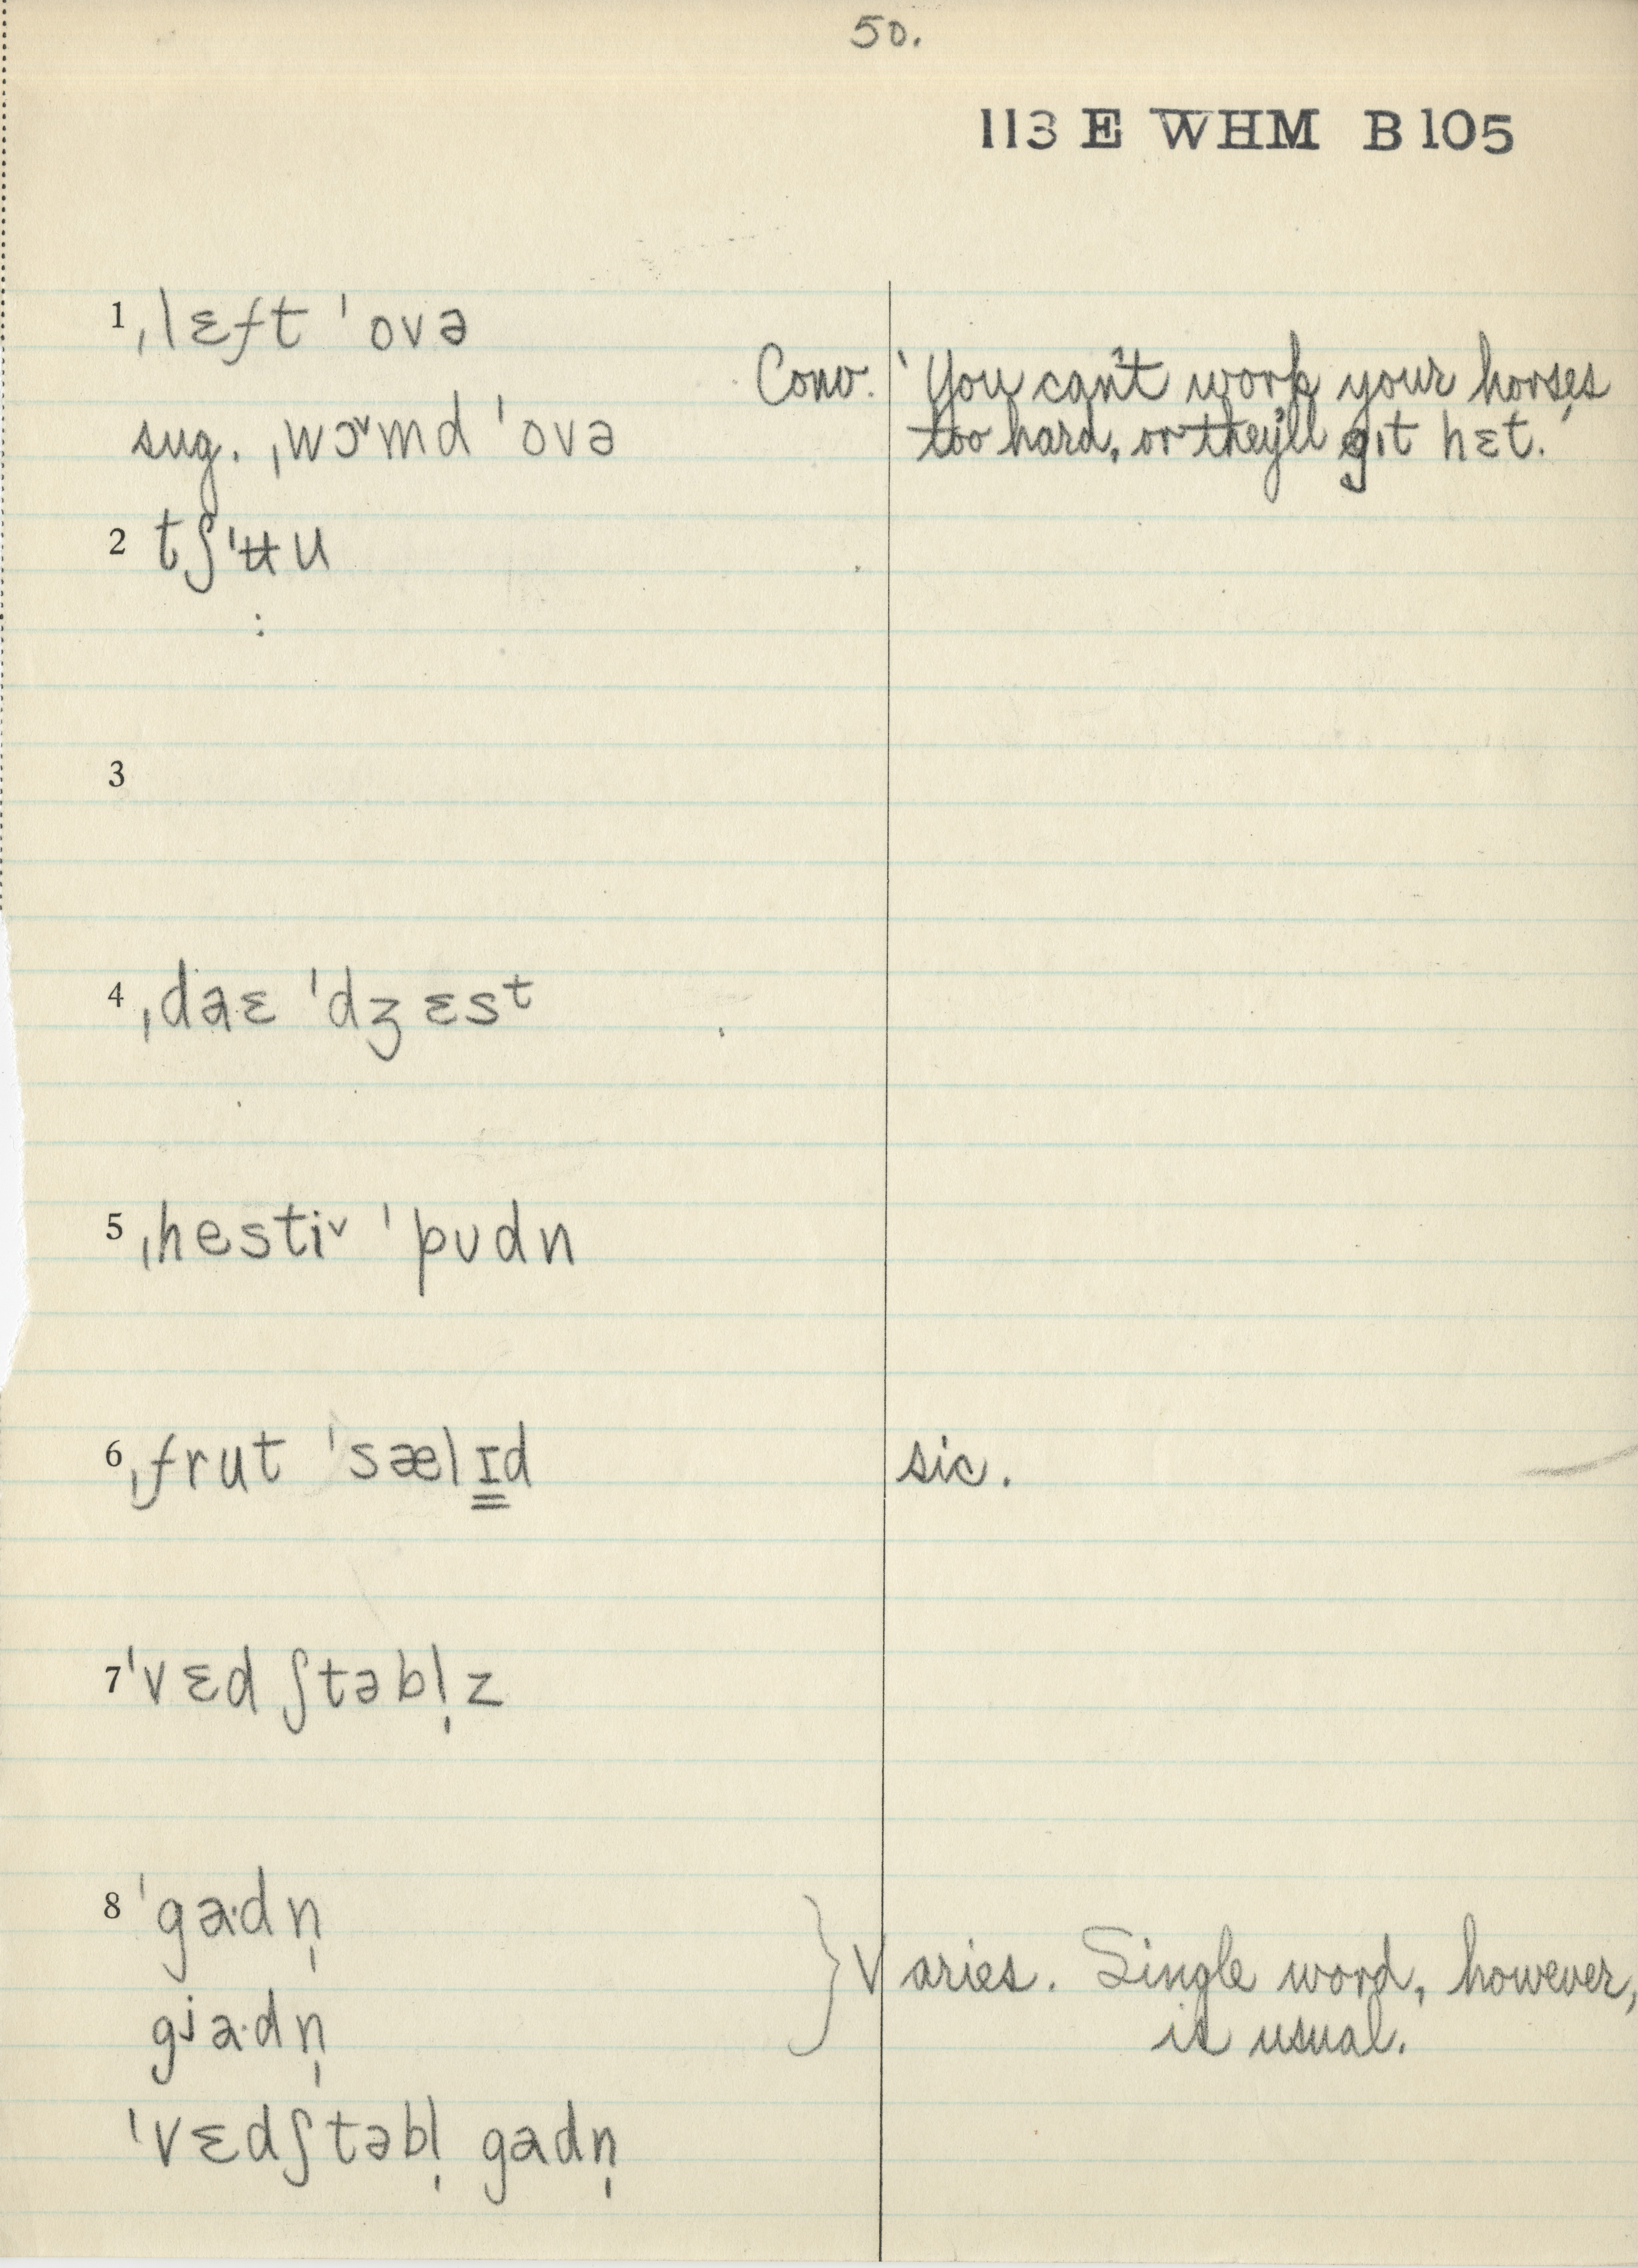 50.
113 E WHM B 105
1 ˌlɛft ˈovə
Conv. 'You can't work your horses
sug. ˌwɔ˅md ˈovə too hard, or they'll gɪt hɛt.'
2 tʃˈʉu
3
4 ˌdaɛ ˈdʒɛsᵗ
5 ˌhesti˅ ˈpʊdn
6 ˌfrut ˈsælɪ̳d sic.
7 ˈvɛdʃtəbl̩z
8 ˈga·dn̩
} Varies. Single word, however,
gʲa·dn̩ is usual.
ˈvɛdʃtəbl̩ gadn̩